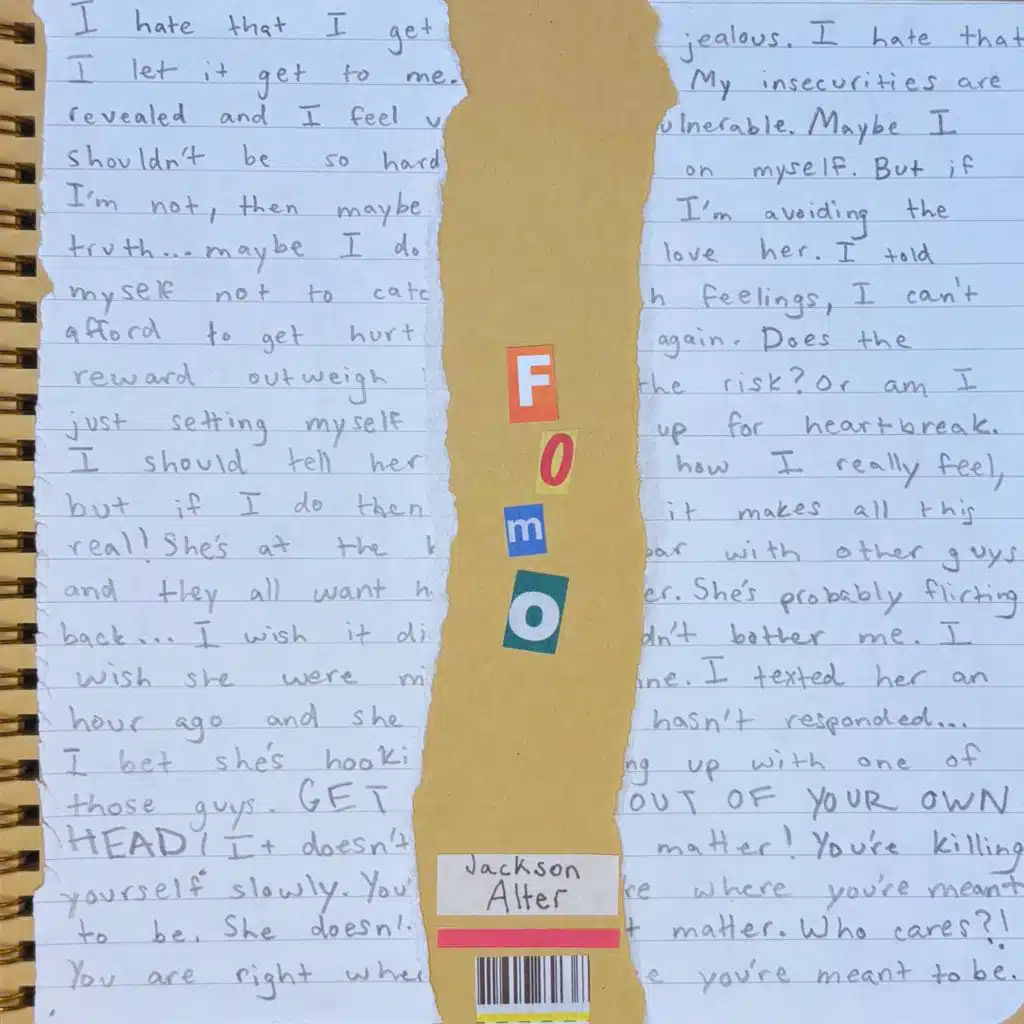 I hate that I get jealous. I hate that
I let it get to me. My insecurities are
revealed and I feel vulnerable. Maybe I
shouldn't be so hard on myself. But if
I'm not, then maybe I'm avoiding the
truth... maybe I do love her. I told
myself not to catch feelings, I can't
afford to get hurt again. Does the
reward outweigh the risk? Or am I
just setting myself up for heartbreak.
I should tell her how I really feel,
but if I do then it makes all this
real! She's at the bar with other guys
and they all want her. She's probably flirting
back... I wish it didn't bother me. I
wish she were mine. I texted her an
hour ago and she hasn't responded...
I bet she's hooking up with one of
those guys. GET OUT OF YOUR OWN
HEAD! It doesn't matter! You're killing
yourself slowly. You're where you're meant
to be. She doesn't matter. Who cares?!
You are right where you're meant to be.
F
O
m
O
Jackson
Alter